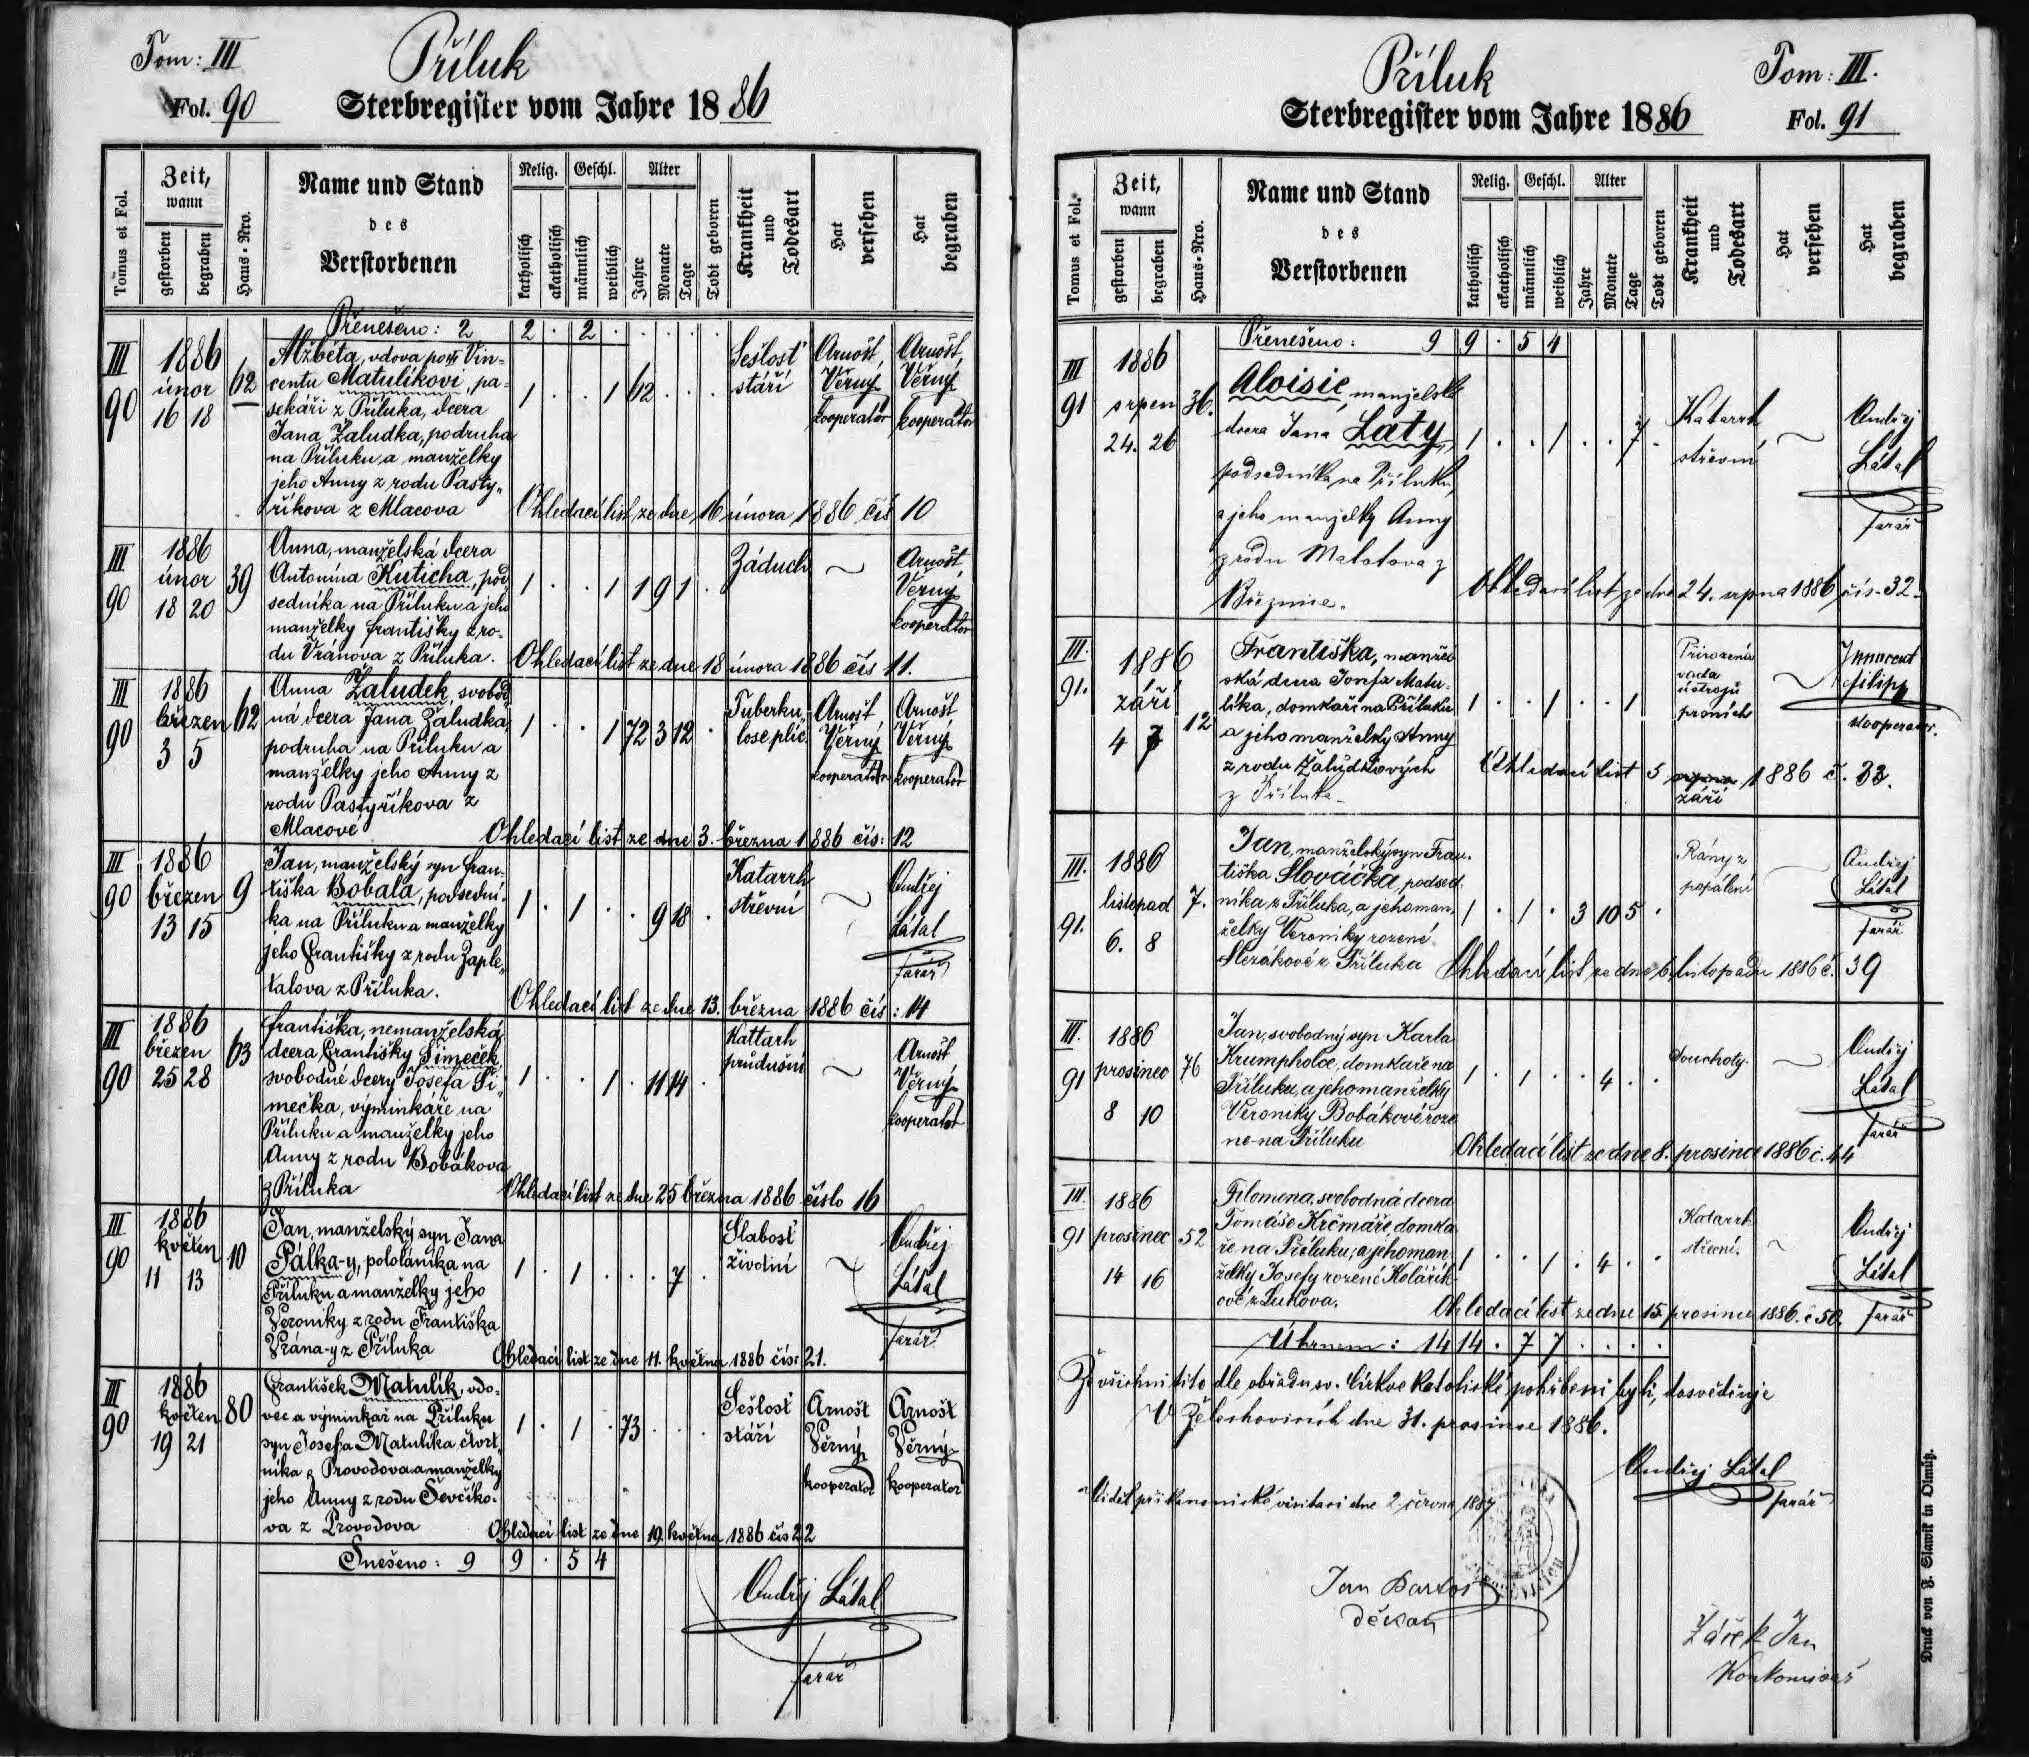 Tom: III
Příluk
Fol. 90
Sterbregister vom Jahre 1886
Tomus et Fol.
Zeit, wann
gestorben
begraben
Haus-Nro.
Name und Stand
des
Verstorbenen
Relig.
katholisch
akatholisch
Geschl.
männlich
weiblich
Alter
Jahre
Monate
Tage
Todt geboren
Krankheit und Todesart
Hat versehen
Hat begraben
Přenešeno: 2 2 . 2 . . . . .
III 90
1886 únor 16 18
62
Alžběta, vdova po Vin-
centu Matulíkovi, pa-
sekáři z Příluka, dcera
Jana Žaludka, podruha
na Příluku a manželky
jeho Anny z rodu Pasty-
říkova z Mlacova
1 . . 1 62 . . .
Sešlosť stáří
Arnošt Věrný kooperator
Arnošt Věrný kooperator
Ohledací list ze dne 16 února 1886 čís 10
III 90
1886 únor 18 20
39
Anna, manželská dcera
Antonína Kuticha, pod
sedníka na Příluku a jeho
manželky Františky z ro-
du Vránova z Příluka.
1 . . 1 1 9 1 .
Záduch
Arnošt Věrný kooperator
Ohledací list ze dne 18 února 1886 čís 11.
III 90
1886 březen 3 5
62
Anna Žaludek, svobod-
ná dcera Jana Žaludka,
podruha na Příluku a
manželky jeho Anny z
rodu Pastyříkova z
Mlacové
1 . . 1 72 3 12 .
Tuberku-
lose plic
Arnošt Věrný kooperator
Arnošt Věrný kooperator
Ohledací list ze dne 3. března 1886 čís: 12
III 90
1886 březen 13 15
9
Jan, manželský syn Fran-
tiška Bobala, podsední-
ka na Příluku a manželky
jeho Františky z rodu Zaple-
talova z Příluka.
1 . 1 . . 9 18 .
Katarrh střevní
Ondřej Látal farář
Ohledací list ze dne 13. března 1886 čís: 14
III 90
1886 březen 25 28
63
Františka, nemanželská
dcera Františky Šimeček,
svobodné dcery Josefa Ši-
mečka, výminkáře na
Příluku a manželky jeho
Anny z rodu Bobákova
z Příluka
1 . . 1 . 11 14 .
Kattarh průdušní
Arnošt Věrný kooperator
Ohledací list ze dne 25 března 1886 číslo 16
III 90
1886 květen 11 13
10
Jan, manželský syn Jana
Pálka-y, pololáníka na
Příluku a manželky jeho
Veroniky z rodu Františka
Vrána-y z Příluka
1 . 1 . . . 7 .
Slabosť životní
Ondřej Látal farář
Ohledací list ze dne 11. května 1886 čís: 21.
III 90
1886 květen 19 21
80
František Matulík, vdo-
vec a výminkář na Příluku
syn Josefa Matulíka čtvrt-
níka z Provodova a manželky
jeho Anny z rodu Ševčíko-
va z Provodova
1 . 1 . 73 . . .
Sešlosť stáří
Arnošt Věrný kooperator
Arnošt Věrný kooperator
Ohledací list ze dne 19. května 1886 čís 22
Snešeno: 9 9 . 5 4
Ondřej Látal
farář
Příluk
Tom: III.
Sterbregister vom Jahre 1886
Fol. 91
Tomus et Fol.
Zeit, wann
gestorben
begraben
Haus-Nro.
Name und Stand
des
Verstorbenen
Relig.
katholisch
akatholisch
Geschl.
männlich
weiblich
Alter
Jahre
Monate
Tage
Todt geboren
Krankheit und Todesart
Hat versehen
Hat begraben
Přenešeno: 9 9 . 5 4
III 91
1886 srpen 24. 26
36.
Aloisie, manželská
dcera Jana Laty,
podsedníka na Příluku,
a jeho manželky Anny
z rodu Malotova z
Březnice.
1 . . 1 . . 7 .
Katarrh střevní
Ondřej Látal farář
Ohledací list ze dne 24. srpna 1886 čís. 32.
III. 91.
1886 září 4 7
12
Františka, manžel
ská dcera Josefa Matu-
líka, domkaři na Příluku
a jeho manželky Anny
z rodu Žaludkových
z Příluka.
1 . . 1 . . 1
Přirozená vada ústrojů prsních
Innocent Filipp kooperator.
Ohledací list 5 srpna září 1886 č. 33.
III. 91.
1886 listopad 6. 8
7.
Jan, manželský syn Fran-
tiška Slováčka, podsed-
níka z Příluka, a jeho man-
želky Veroniky rozené
Slezákové z Příluka
1 . 1 . 3 10 5 .
Rány z popálení
Ondřej Látal farář
Ohledací list ze dne 6. listopadu 1886 č. 39
III. 91
1886 prosinec 8 10
76
Jan, svobodný syn Karla
Krumpholce, domkaře na
Příluku, a jeho manželky
Veroniky Bobákové roze
né na Příluku
1 . 1 . . 4 . .
Souchoty.
Ondřej Látal farář
Ohledací list ze dne 8. prosince 1886 č. 44
III. 91
1886 prosinec 14 16
52
Filomena, svobodná dcera
Tomáše Krčmáře, domka
ře na Příluku, a jeho man
želky Josefy rozené Kolářík-
ové z Lukova.
1 . . 1 . 4 . .
Katarrh střevní.
Ondřej Látal farář
Ohledací list ze dne 15. prosince 1886. č 50.
Úhrnem: 14 14 . 7 7 . . . .
Že všichni tito dle obřadu sv. Církve katolické pohřbeni byli, dosvědčuje
V Želechovicích dne 31. prosince 1886.
Ondřej Látal
farář
Viděl při kanonické visitaci dne 2. června 1887
Jan Bartoš
děkan
Žáček Jan
Druck von F. Slawik in Olmütz.